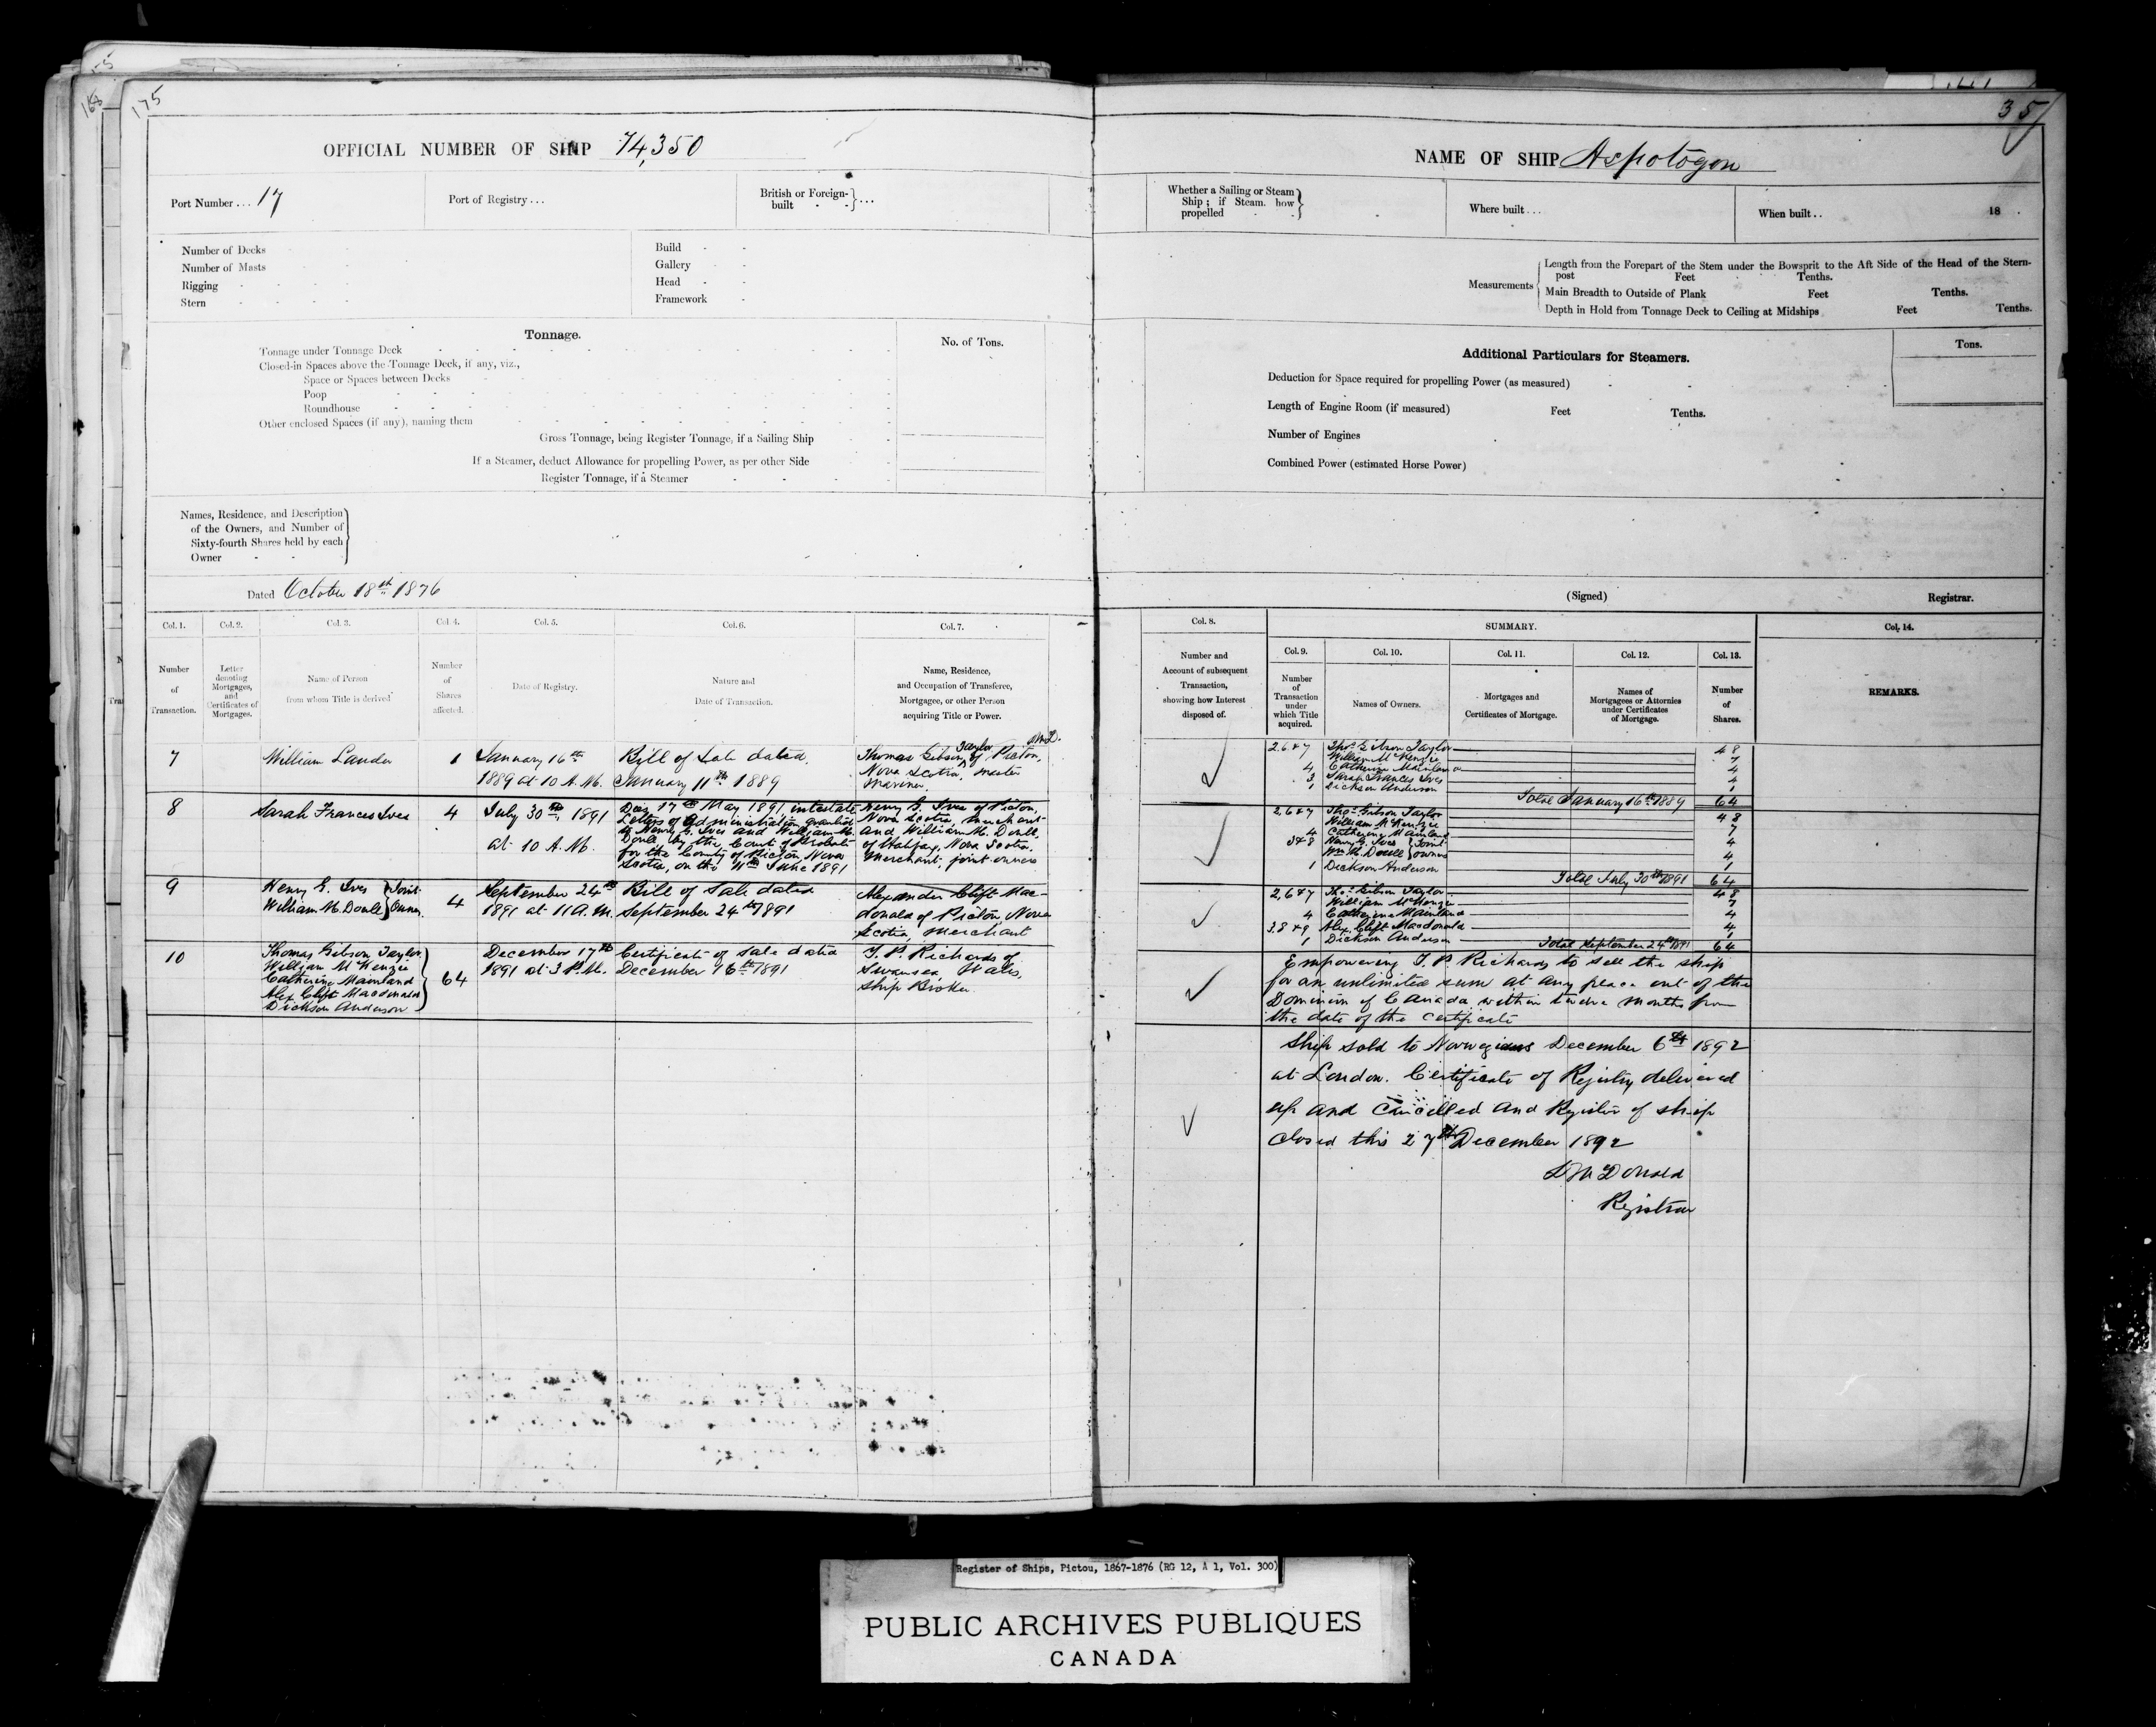 175
35
OFFICIAL NUMBER OF SHIP 74,350
NAME OF SHIP Aspotogon
Port Number ... 17
Port of Registry ...
British or Foreign-built - - } ...
Whether a Sailing or Steam Ship; if Steam. how propelled - - }
Where built ...
When built .. 18
Number of Decks
Number of Masts
Rigging
Stern
Build
Gallery
Head
Framework
Measurements
Length from the Forepart of the Stem under the Bowsprit to the Aft Side of the Head of the Stern-
post Feet Tenths.
Main Breadth to Outside of Plank Feet Tenths.
Depth in Hold from Tonnage Deck to Ceiling at Midships Feet Tenths.
Tonnage.
No. of Tons.
Tonnage under Tonnage Deck
Closed-in Spaces above the Tonnage Deck, if any, viz.,
Space or Spaces between Decks
Poop
Roundhouse
Other enclosed Spaces (if any), naming them
Gross Tonnage, being Register Tonnage, if a Sailing Ship
If a Steamer, deduct Allowance for propelling Power, as per other Side
Register Tonnage, if a Steamer
Additional Particulars for Steamers.
Tons.
Deduction for Space required for propelling Power (as measured)
Length of Engine Room (if measured) Feet Tenths.
Number of Engines
Combined Power (estimated Horse Power)
Names, Residence, and Description
of the Owners, and Number of
Sixty-fourth Shares held by each
Owner
Dated October 18th 1876
(Signed) Registrar.
Col. 1. Col. 2. Col. 3. Col. 4. Col. 5. Col. 6. Col. 7.
Number of Transaction.
Letter denoting Mortgages, and Certificates of Mortgages.
Name of Person from whom Title is derived
Number of Shares affected.
Date of Registry.
Nature and Date of Transaction.
Name, Residence, and Occupation of Transferee, Mortgagee, or other Person acquiring Title or Power.
Col. 8. SUMMARY. Col. 14.
Col. 9. Col. 10. Col. 11. Col. 12. Col. 13.
Number and Account of subsequent Transaction, showing how Interest disposed of.
Number of Transaction under which Title acquired.
Names of Owners.
Mortgages and Certificates of Mortgage.
Names of Mortgagees or Attornies under Certificates of Mortgage.
Number of Shares.
REMARKS.
7 William Lauder 1
January 16th
1889 at 10 A.M.
Bill of Sale dated
January 11th 1889
Thomas Gibson Taylor of Pictou,
Nova Scotia, Master
Mariner.
2.6&7 Thos. Gibson Taylor 48
William McKenzie 7
4 Catherine Mainland 4
3 Sarah Frances Ives 4
1 Dickson Anderson 1
Total January 16th 1889 64
8 Sarah Frances Ives 4
July 30th, 1891
at 10 A.M.
17th May 1891 intestate
Letters of Administration granted
to Henry G. Ives and William M.
Doull by the Court of Probate
for the County of Pictou, Nova
Scotia, on the June 1891
Henry G. Ives of Pictou,
Nova Scotia, Merchant
and William M. Doull,
of Halifax, Nova Scotia.
Merchant, joint owners
2,6&7 Thos. Gibson Taylor 48
William McKenzie 7
4 Catherine Mainland 4
3&8 Henry G. Ives } Joint
Wm M. Doull } owners 4
1 Dickson Anderson 1
Total July 30th 1891 64
9 Henry G. Ives } Joint
William M. Doull } Owners. 4
September 24th
1891 at 11 A.M.
Bill of Sale dated
September 24th 1891
Alexander Clift Mac-
donald of Pictou, Nova
Scotia, Merchant
2,6&7 Thos. Gibson Taylor 48
William McKenzie 7
4 Catherine Mainland 4
3.8&9 Alex. Clift Macdonald 4
1 Dickson Anderson 1
Total September 24th 1891 64
10 Thomas Gibson Taylor
William McKenzie
Catherine Mainland
Alex Clift Macdonald
Dickson Anderson
64
December 17th
1891 at 3 P.M.
Certificate of Sale dated
December 16th 1891
T. P. Richards of
Swansea, Wales,
Ship Broker.
Empowering T. P. Richards to sell the ship
for an unlimited sum at any place out of the
Dominion of Canada within twelve months from
the date of the certificate
Ship sold to Norwegians December 6th 1892
at London. Certificate of Registry delivered
up and Cancelled and Register of ship
closed this 27th December 1892
D McDonald
Registrar
Register of Ships, Pictou, 1867-1876 (RG 12, A 1, Vol. 300)
PUBLIC ARCHIVES PUBLIQUES
CANADA